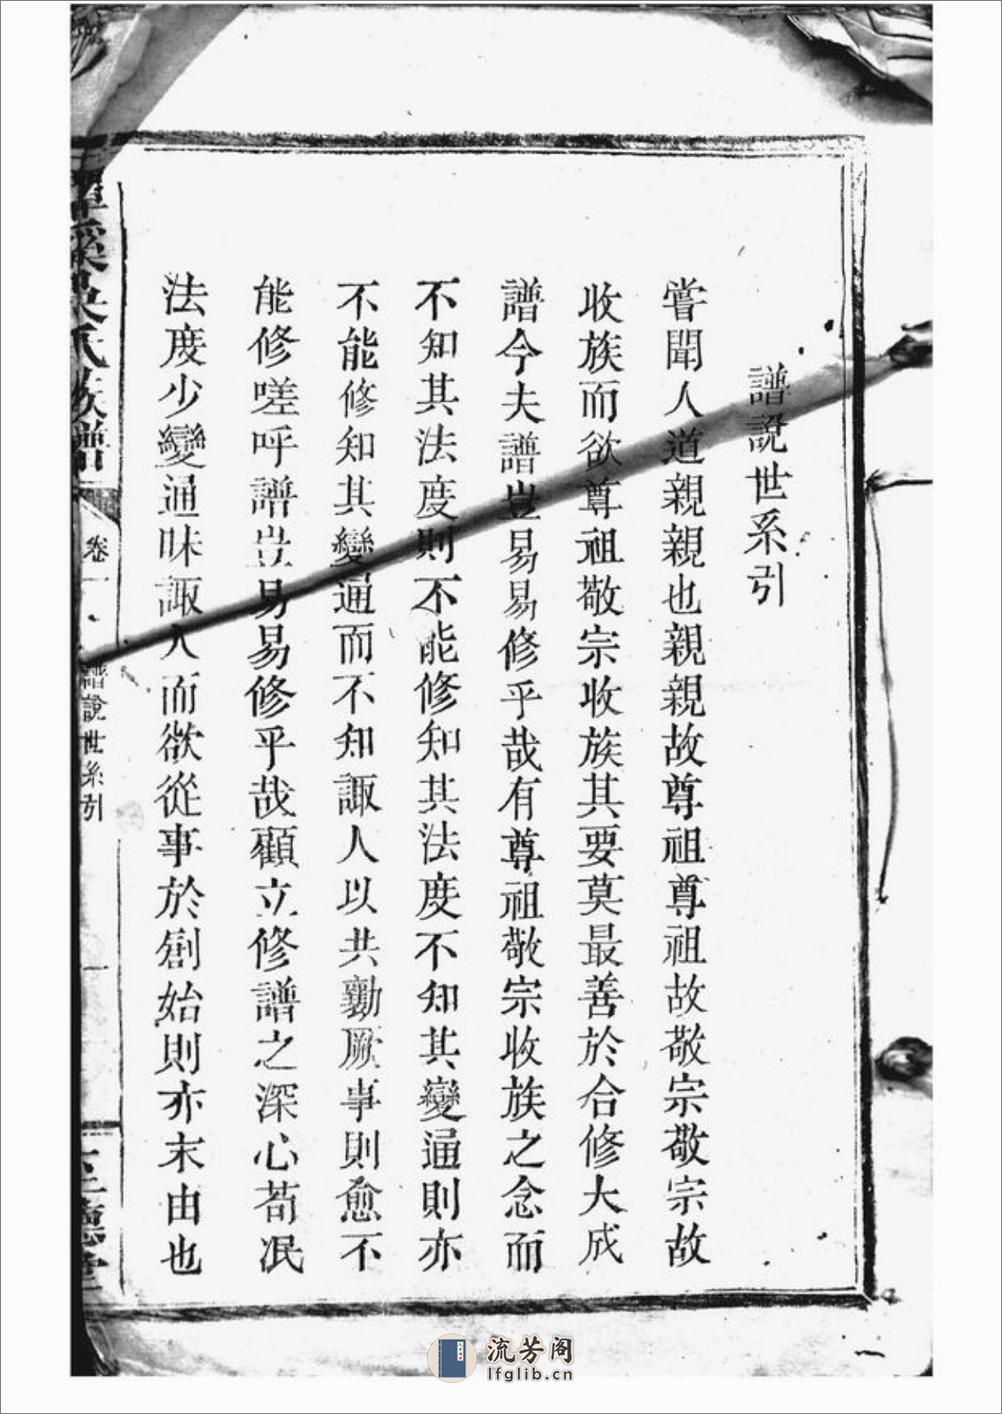 譜說世系引
嘗聞人道親親也親親故尊祖尊祖故敬宗敬宗故
收族而欲尊祖敬宗收族其要莫最善於合修大成
譜今夫譜豈易易修乎哉有尊祖敬宗收族之念而
不知其法度則不能修知其法度不知其變通則亦
不能修知其變通而不知諏人以共勷厥事則愈不
能修嗟呼譜豈易易修乎哉顧立修譜之深心苟泯
法度少變通昧諏人而欲從事於創始則亦末由也
溪吳氏族譜
卷一
譜說世系引
一
德堂
流芳阁
lfglib.cn